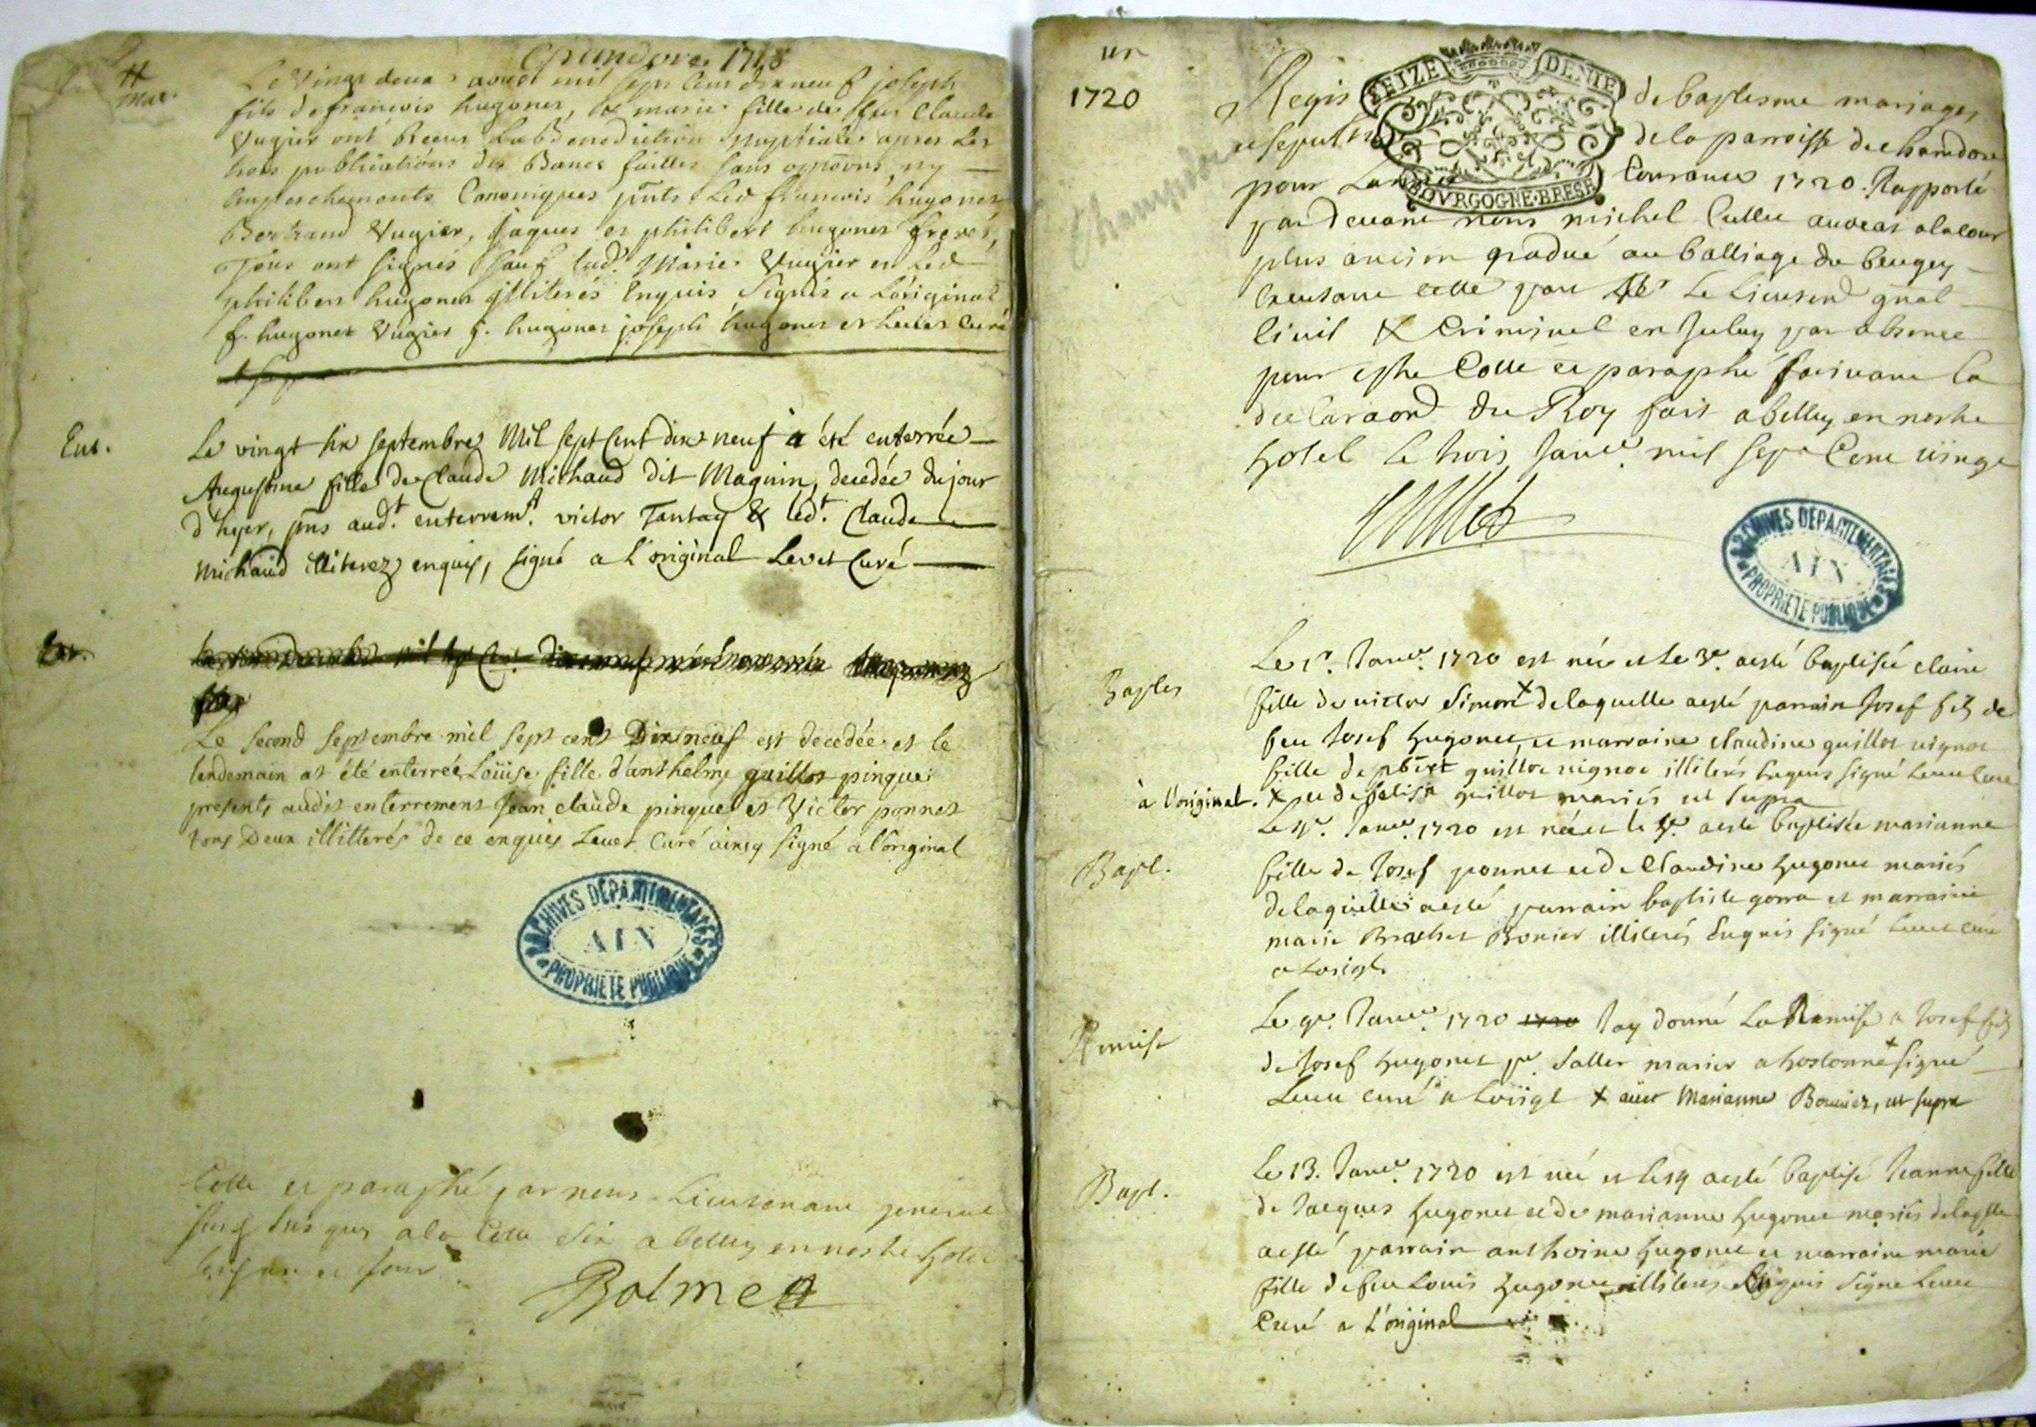 Mar.
Le vingt deux avril mil sept cent dix neuf joseph
fils de françois hugonet, & marie fille de feu Claude
Vugier ont Receu La Benediction Nuptiale apres Les
trois publications des Bancs faittes sans ny
Empeschements Canoniques pnts Led françois hugonet
Bertrand Vugier, Jaques et philibert hugonet freres,
ont signes sauf lad. Marie Vugier et Led
philibert hugonet illiterés Enquis Signés a Loriginal
f. hugonet Vugier j. hugonet joseph hugonet et Levet Curé
Ent.
Le vingt six septembre Mil sept Cent dix neuf a été enterrée
Augustine fille de Claude Michaud dit Magnin, decedée du jour
d'hyer, pns aud.t enterrem.t victor Tantay & led.t Claude
Michaud illiterez enquis, signé a L'original Levet Curé
Le second septembre mil sept cent Dix neuf est decedée et le
lendemain at été enterrée Loüise fille d'anthelme guillot pinque
presents audit enterrement Jean claude pinque et Victor ponnet
tous Deux illitterés de ce enquis Levet Curé ainsy signé a l'original
ARCHIVES DEPARTEMENTALES
AIN
PROPRIETE PUBLIQUE
Cotté et paraphé par nous Lieutenant general
a belley en nostre hotel
Balme
un
1720
SEIZE DENIE
BOURGOGNE·BRESE
Regis de baptesme mariages
et sepult de la parroisse de chamdore
pour Lan Courante 1720. Rapporté
par devant nous michel Cullet avocat a la cour
plus ancien gradué au balliage du beugey
Le Lieutend gnal
Civil & Criminel en Iceluy par absence
pour estre Cotté et paraphé suivant la
declaraond du Roy fait a belley en nostre
hotel le trois Janv.er mil sept Cent vingt
Cullet
ARCHIVES DEPARTEMENTALES
AIN
PROPRIETE PUBLIQUE
Baptes
Le 1r. Janv.er 1720 est née et le 3e. aesté baptisée claire
fille de victor Simon x delaquelle aesté parrain Josef fils de
feu Josef hugonet, et marraine claudine guillot vignot
fille de pbert guillot vignot illiterés Enquis signé Levet Curé
à l'original. x et de guillot mariés ut supra
Bapt.
Le Janv.er 1720 est née et le aesté baptisée marianne
fille de Josef ponnet et de Claudine hugonet mariés
delaquelle aesté parrain baptiste gorra et marraine
marie Brachet Bonier illiterés Enquis signé Levet curé
a Lorigl
Remise
Le 9e. Janv.er 1720 Jay donné La Remise a Josef fils
de Josef hugonet pr. saller marier a hostonne x signé
Levet curé a Lorigl x avec Marianne Bouvier, ut supra
Bapt.
Le 13. Janv.er 1720 est née et le 14 aesté baptisé Jeanne fille
de Jacques hugonet et de marianne hugonet mariés delaqlle
aesté parrain anthoine hugonet et marraine marie
fille de feu Louis hugonet illiterés Enquis signé Levet
Curé a L'original